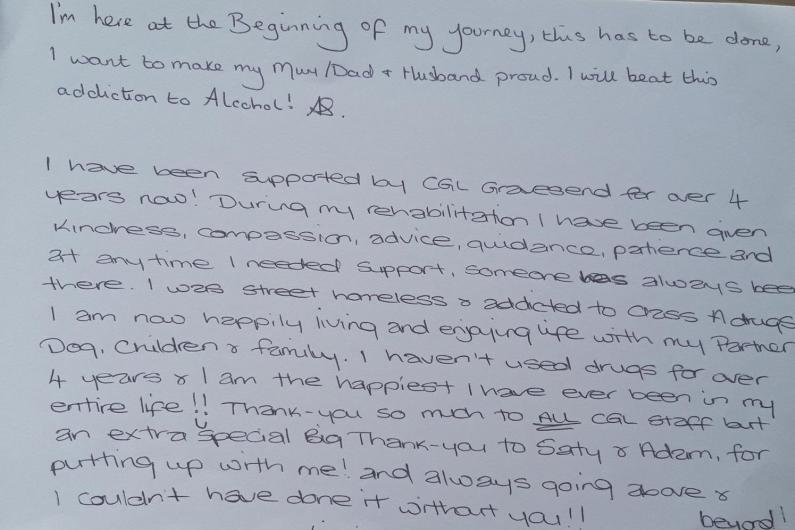 I'm here at the Beginning of my journey, this has to be done,
I want to make my Mum/Dad + Husband proud. I will beat this
addiction to Alcohol!
I have been supported by CGL Gravesend for over 4
years now! During my rehabilitation I have been given
kindness, compassion, advice, guidance, patience and
at anytime I needed support, someone has always bee
there. I was street homeless & addicted to Class A drugs
I am now happily living and enjoying life with my Partner
Dog, Children & family. I haven't used drugs for over
4 years & I am the happiest I have ever been in my
entire life!! Thank-you so much to ALL CGL staff but
an extra special Big Thank-you to Saty & Adam, for
putting up with me! and always going above &
I couldn't have done it without you!! beyond!